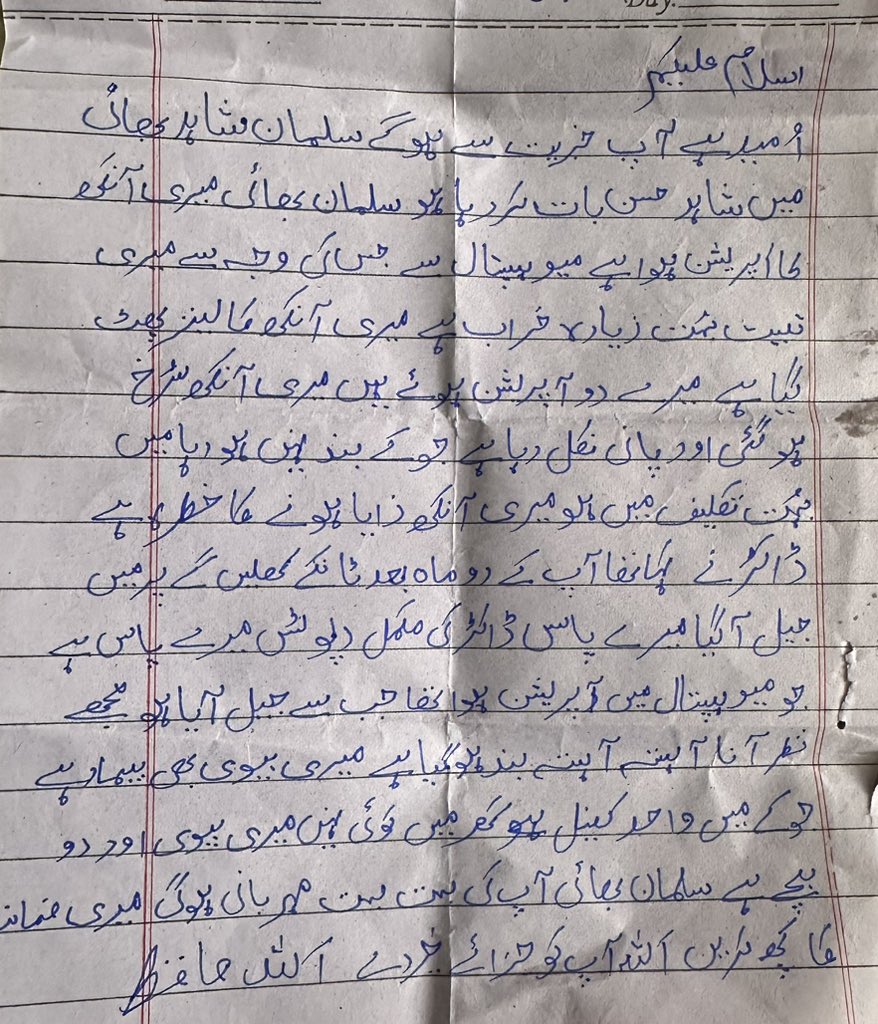 Day.
اسلام علیکم
اُمید ہے آپ خریت سے ہوگے سلمان شاہد بھائی
میں شاہد حسن بات کر رہا ہو سلمان بھائی میری آنکھ
کا اپریشن ہوا ہے میو ہسپتال سے جس کی وجہ سے میری
تبیت بہت زیادہ خراب ہے میری آنکھ کا لینز پھٹ
گیا ہے میرے دو آپریشن ہوئے ہیں میری آنکھ سُرخ
ہو گئی اور پانی نکل رہا ہے جو کے بند نہیں ہو رہا میں
بہت تکلیف میں ہو میری آنکھ ذایا ہونے کا خطرہ ہے
ڈاکٹر نے کہا تھا آپ کے دو ماہ بعد ٹانکے کھلیں گے پر میں
جیل آگیا میرے پاس ڈاکٹر کی مکمل رپوٹس میرے پاس ہے
جو میو ہسپتال میں آپریشن ہوا تھا جب سے جیل آیا ہو مجھے
نظر آنا آہستہ آہستہ بند ہوگیا ہے میری بیوی بھی بیمار ہے
جو کے میں واحد کفیل ہو گھر میں کوئی نہیں میری بیوی اور دو
بچے ہے سلمان بھائی آپ کی بہت بہت مہربانی ہوگی میری ضمانت
کا کچھ کریں اللہ آپ کو جزائے خیر دے اللہ حافظ